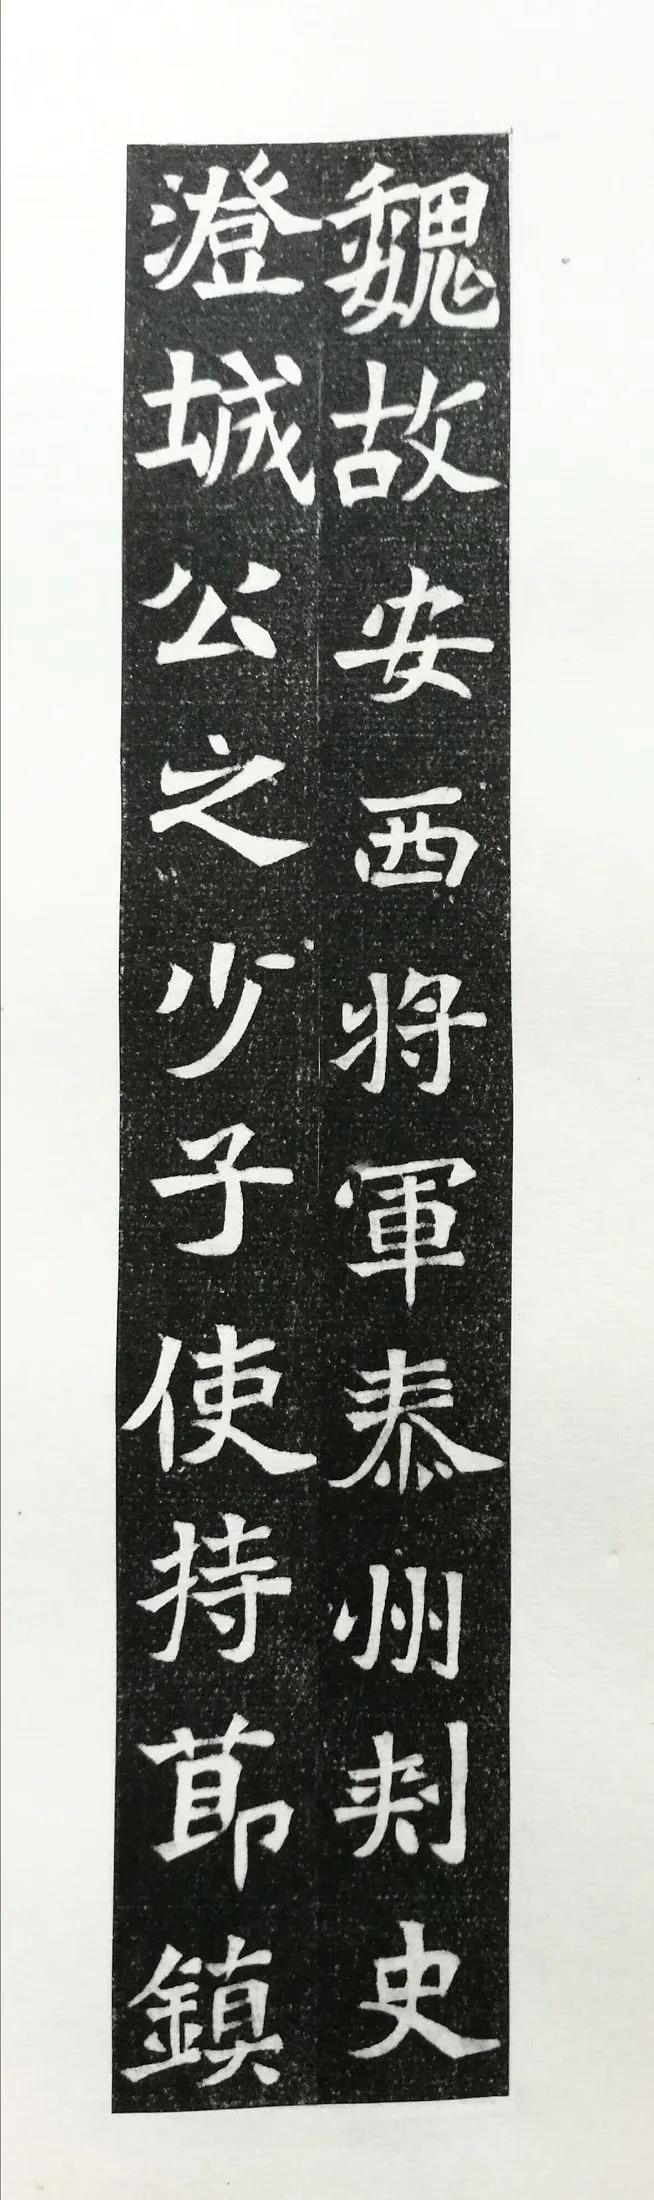 魏故安西将軍泰州刾史
澄城公之少子使持莭鎮